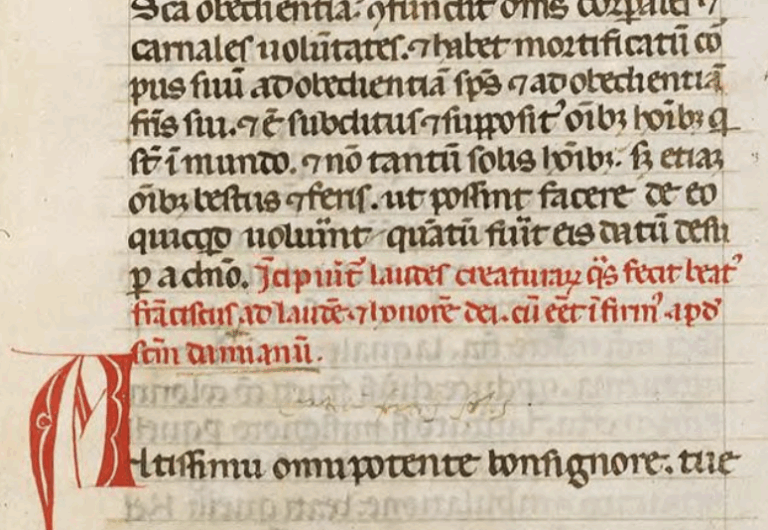 Sca obedientia. ꝯfundit om̄s corꝑales ⁊
carnales uolūtates. ⁊ habet mortificatū cō
pus suū ad obedientiā sp̄s ⁊ ad obedientiā
fr̄is sui. ⁊ ē subditus ⁊ supposit᾽ oībꝫ hoībꝫ q̄
st̄ ī mundo. ⁊ nō tantū solis hoībꝫ. sꝫ etiaꝫ
oībꝫ bestiis ⁊ feris. ut possint facere de eo
quicqd uoluīnt quātū fuīt eis datū desu
ꝑ a dn̄o. Īcipiūt laudes creaturaꝝ q̄s fecit beat᾽
frāciscus ad laudē ⁊ honorē dei. cū eēt ī firm᾽ apd᾽
sc̄m damianū.
Altissimu omnipotente bonsignore. tue